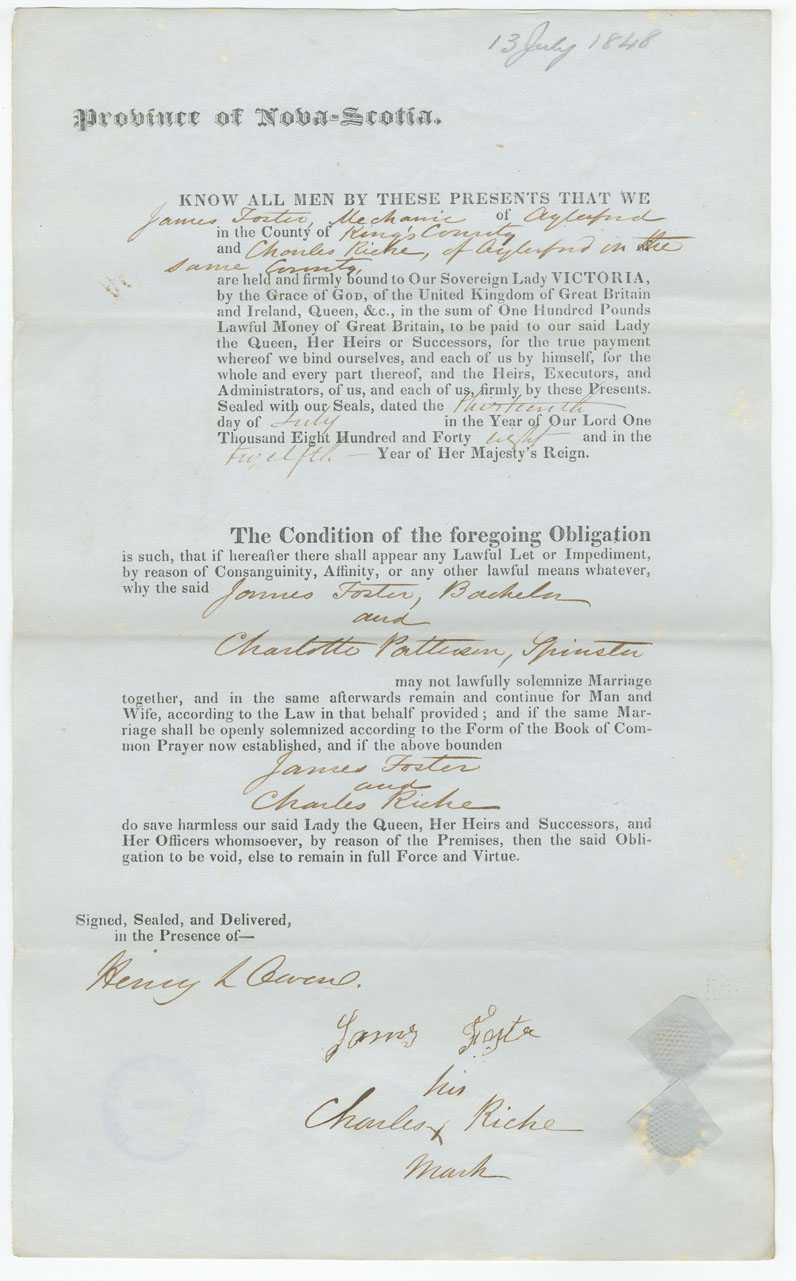 13 July 1848
Province of Nova-Scotia.
KNOW ALL MEN BY THESE PRESENTS THAT WE
James Foster, Mechanic of Aylesford
in the County of King's County
and Charles Riche, of Aylesford in the
same County,
are held and firmly bound to Our Sovereign Lady VICTORIA,
by the Grace of GOD, of the United Kingdom of Great Britain
and Ireland, Queen, &c., in the sum of One Hundred Pounds
Lawful Money of Great Britain, to be paid to our said Lady
the Queen, Her Heirs or Successors, for the true payment
whereof we bind ourselves, and each of us by himself, for the
whole and every part thereof, and the Heirs, Executors, and
Administrators, of us, and each of us, firmly by these Presents.
Sealed with our Seals, dated the thirteenth
day of July in the Year of Our Lord One
Thousand Eight Hundred and Forty eight and in the
twelfth — Year of Her Majesty's Reign.
The Condition of the foregoing Obligation
is such, that if hereafter there shall appear any Lawful Let or Impediment,
by reason of Consanguinity, Affinity, or any other lawful means whatever,
why the said James Foster, Bachelor
and
Charlotte Patterson, Spinster
may not lawfully solemnize Marriage
together, and in the same afterwards remain and continue for Man and
Wife, according to the Law in that behalf provided; and if the same Mar-
riage shall be openly solemnized according to the Form of the Book of Com-
mon Prayer now established, and if the above bounden
James Foster
and
Charles Riche
do save harmless our said Lady the Queen, Her Heirs and Successors, and
Her Officers whomsoever, by reason of the Premises, then the said Obli-
gation to be void, else to remain in full Force and Virtue.
Signed, Sealed, and Delivered,
in the Presence of—
Henry L Owen.
James Foster
his
Charles x Riche
Mark